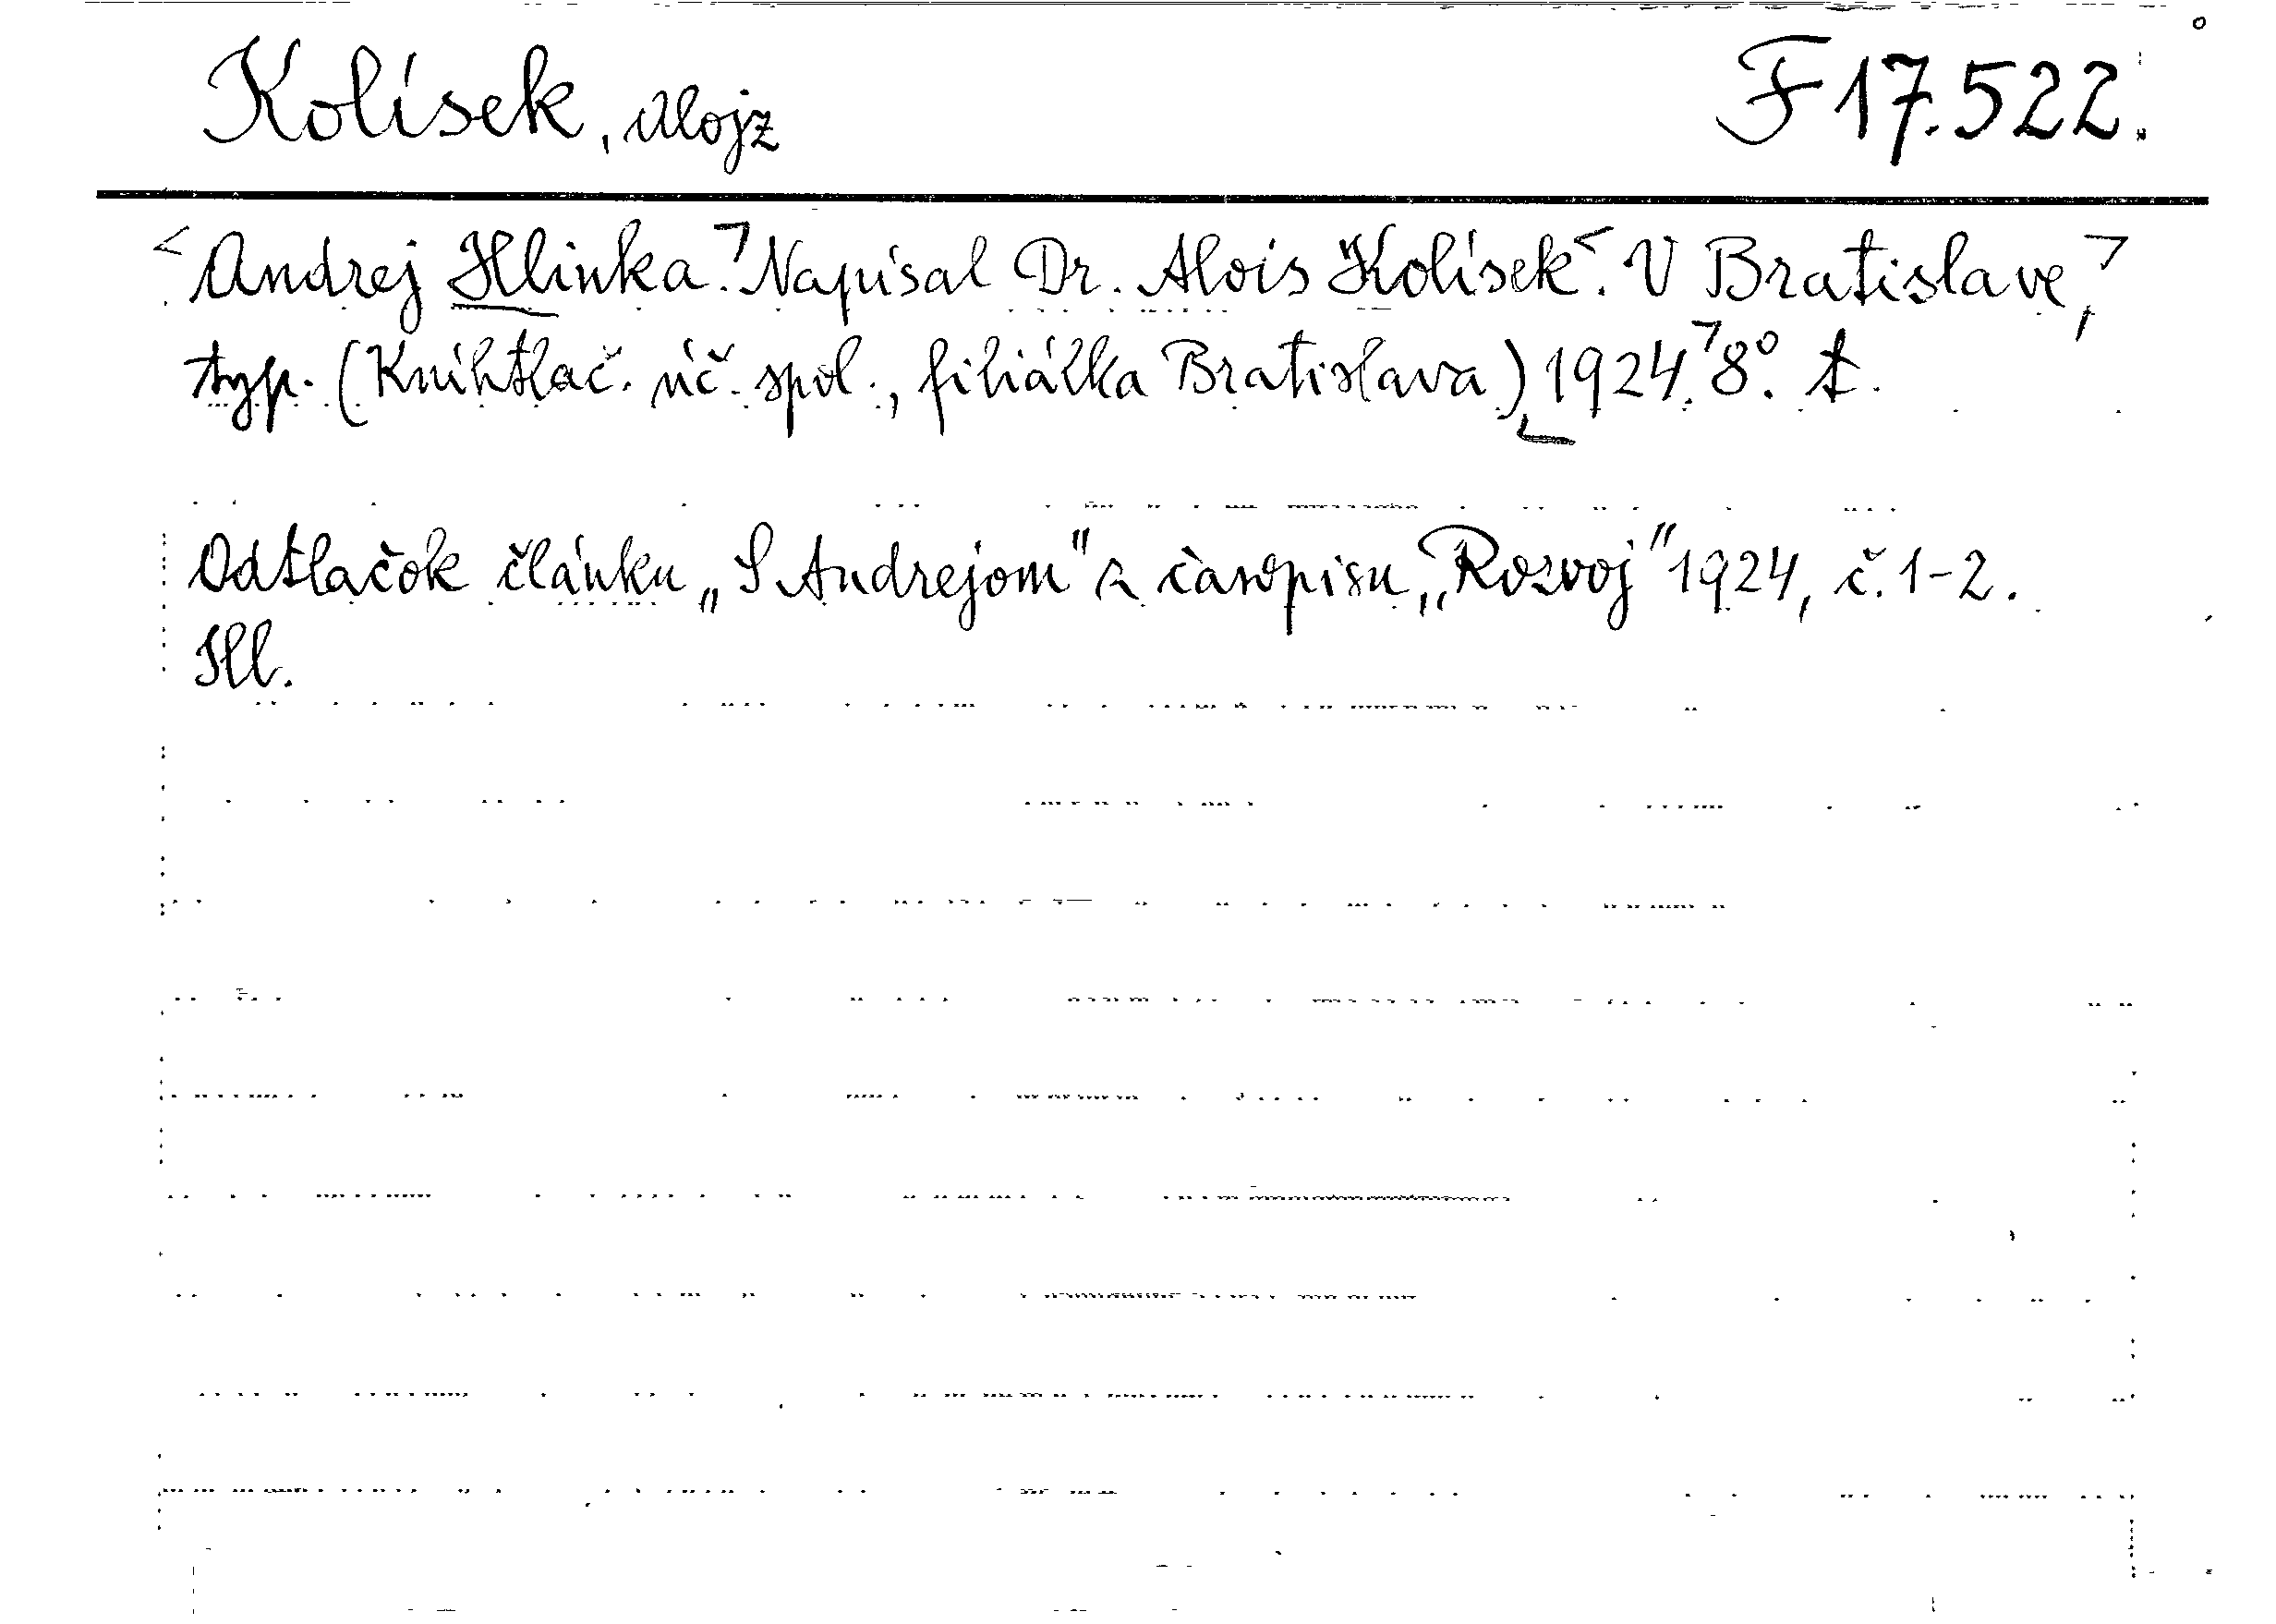 Kolísek, Alojz F 17.522.
<Andrej Hlinka.> Napísal Dr. Alois Kolísek<. V Bratislave,>
typ. (Kníhtlač. úč. spol., filiálka Bratislava) 1924.> 8°.
Odtlačok článku „S Andrejom" z časopisu „Rozvoj" 1924, č. 1-2.
Ill.